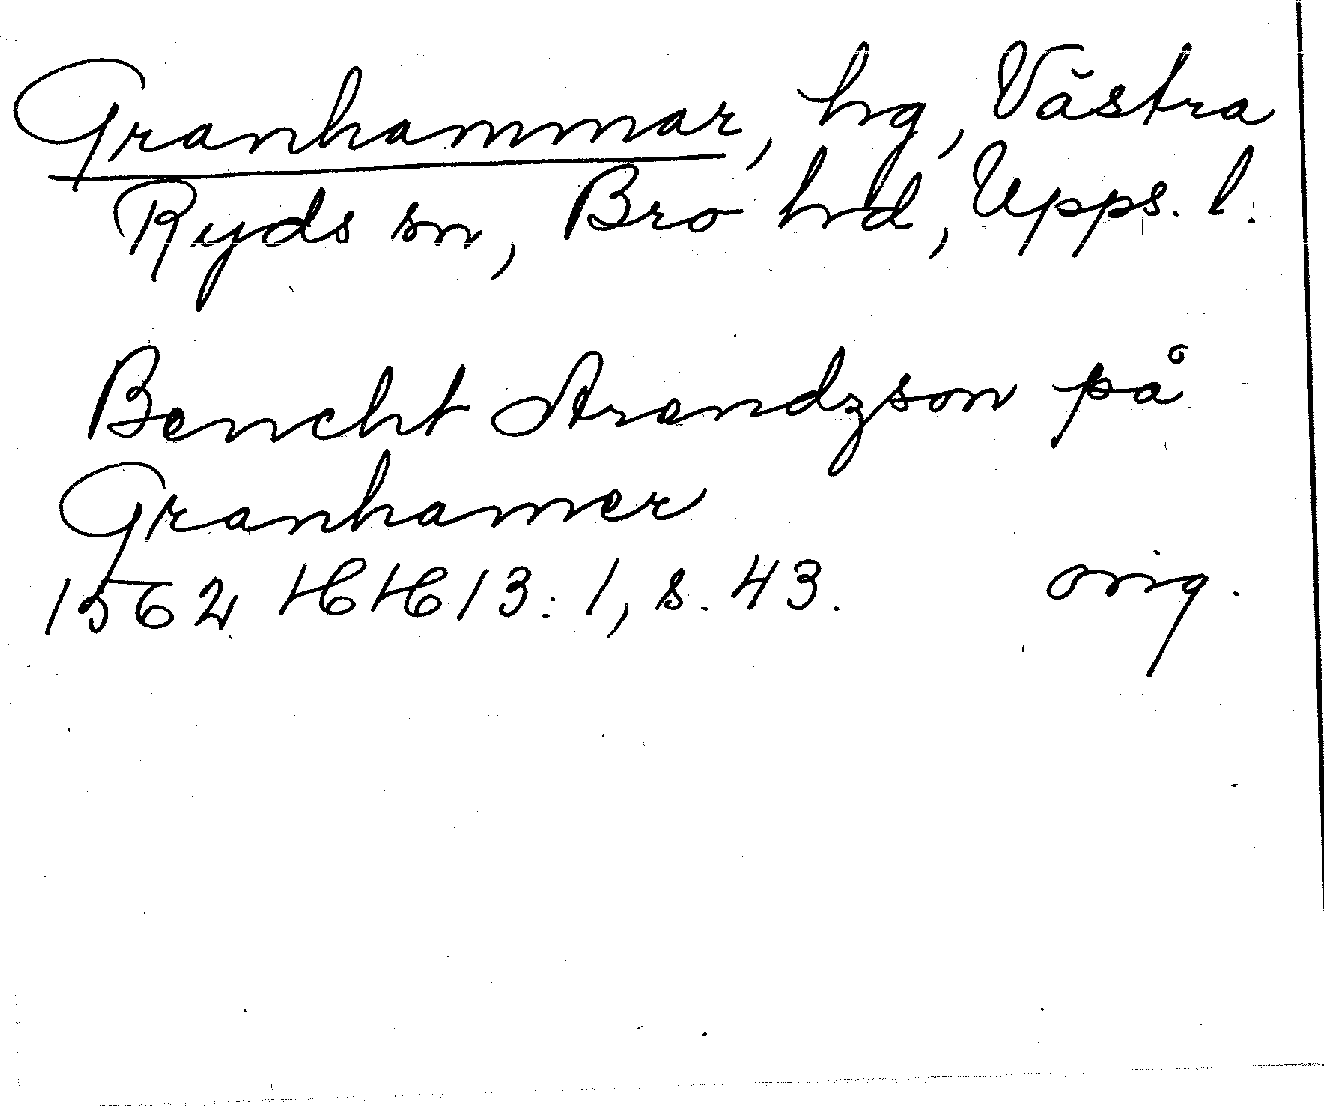 Granhammar, hg, Västra
Ryds sn, Bro hd, Upps. l.
Bencht Arendzson på
Granhamer
1562 HH 13:1, s. 43. orig.